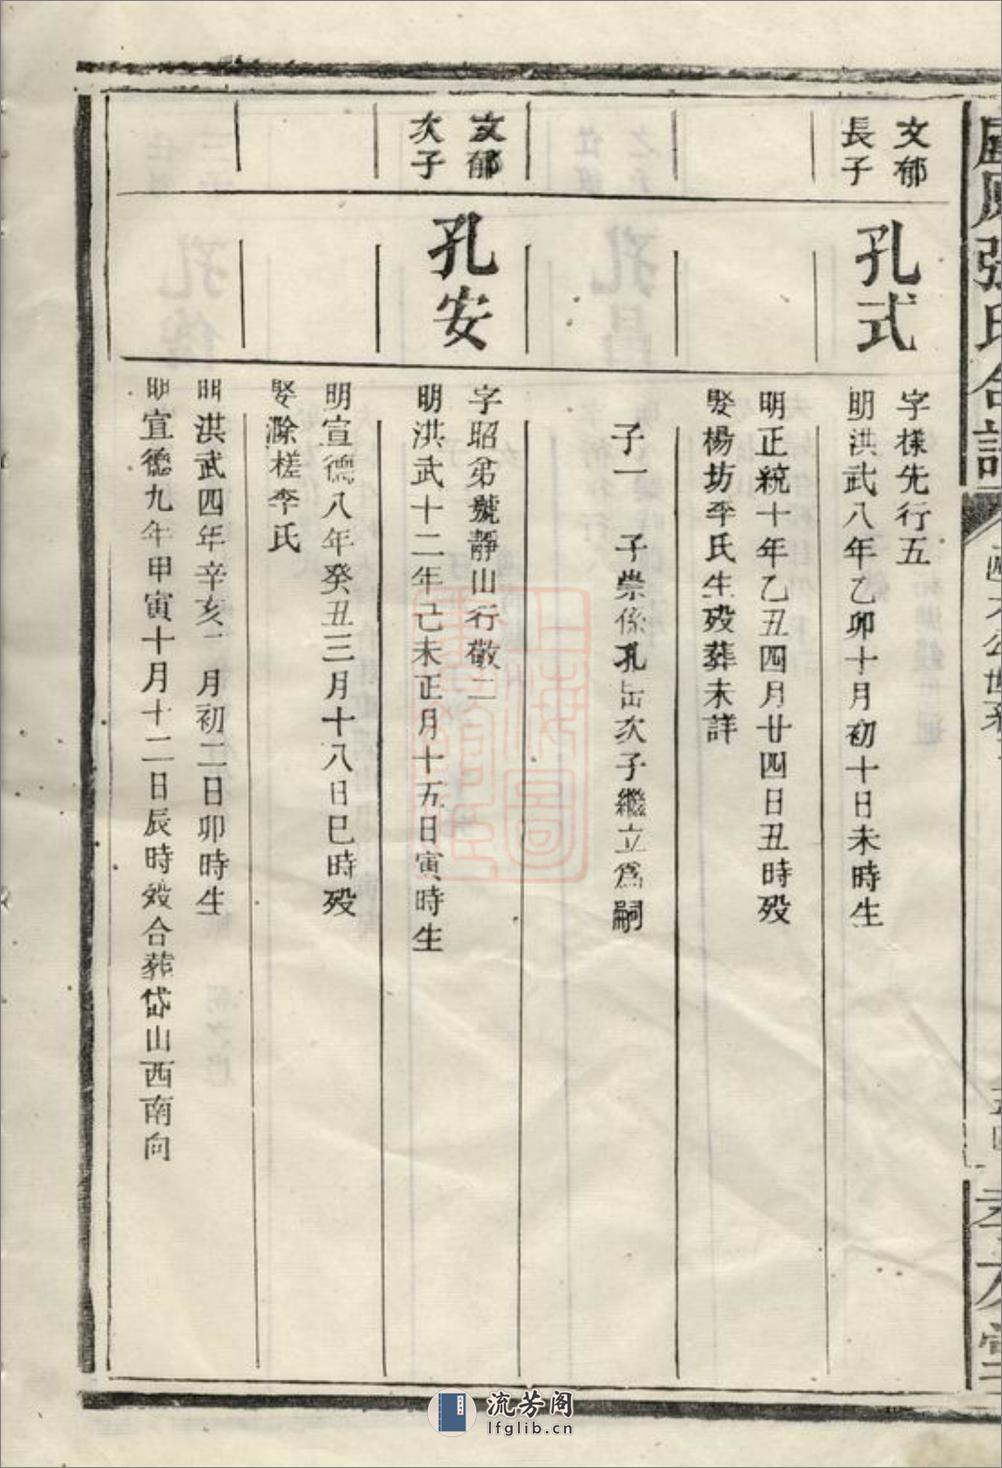 張氏合譜
文郁
長子
孔式
字樣先行五
明洪武八年乙卯十月初十日未時生
明正統十年乙丑四月廿四日丑時殁
娶楊坊李氏生殁葬未詳
子一 子崇係孔缶次子繼立爲嗣
文郁
次子
孔安
字昭弟號靜山行敬二
明洪武十二年己未正月十五日寅時生
明宣德八年癸丑三月十八日巳時殁
娶滁槎李氏
明洪武四年辛亥 月初二日卯時生
明宣德九年甲寅十月十二日辰時殁合葬岱山西南向
流芳阁
lfglib.cn